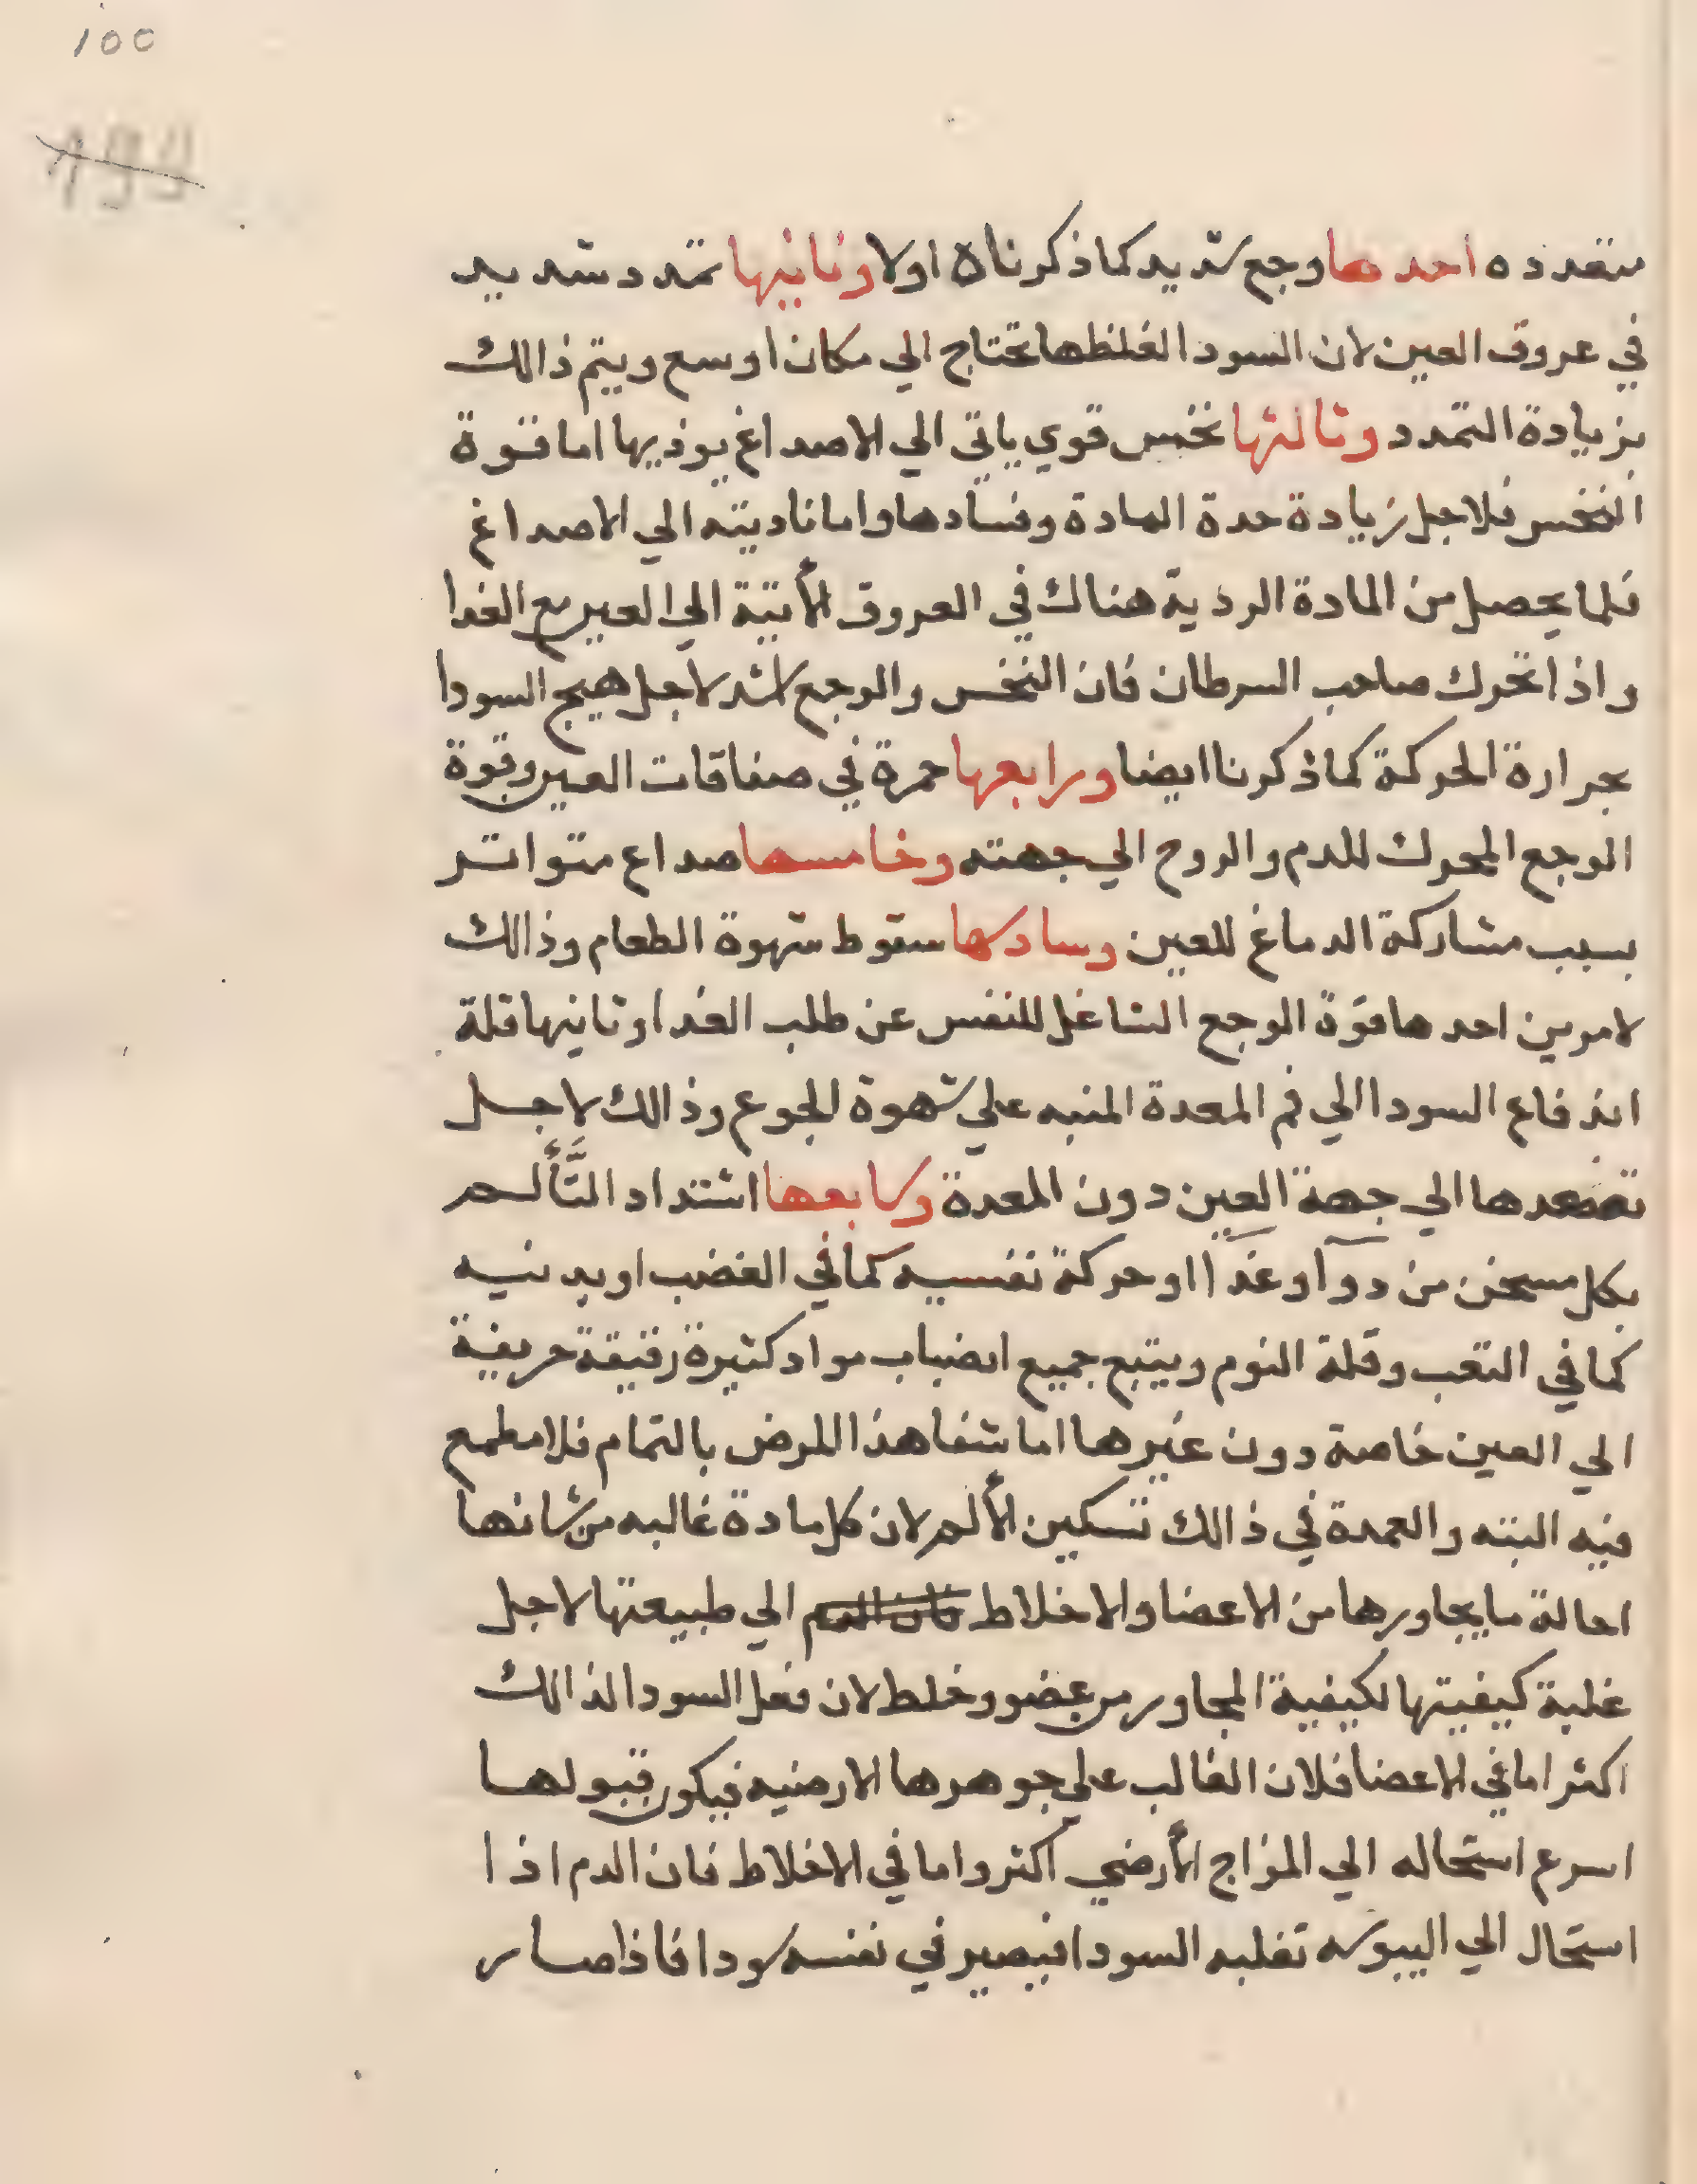 ١٥٥
متعدده احدها وجع شديد كما ذكرناه اولا وثانيها تمدد شديد
في عروق العين لان السودا لغلظها تحتاج الي مكان اوسع ويتم ذالك
بزيادة التمدد وثالثها نخس قوي ياتي الي الاصداغ يوذيها اما قوة
النخس فلاجل زيادة حدة المادة وفسادها واما تاديته الي الاصداغ
فلما يحصل من المادة الردية هناك في العروق الأتية الي العين مع الغدا
واذا تحرك صاحب السرطان فان النخس والوجع اشد لاجل هيج السودا
بحرارة الحركة كما ذكرنا ايضا ورابعها حمرة في صفاقات العين وقوة
الوجع المحرك للدم والروح الي جهته وخامسها صداع متواتر
بسبب مشاركة الدماغ للعين وسادسها سقوط شهوة الطعام وذالك
لامرين احدها قوة الوجع الشاغل للنفس عن طلب الغدا وثانيها قلة
اندفاع السودا الي فم المعدة المنبه علي شهوة الجوع وذالك لاجل
تصعدها الي جهة العين دون المعدة وسابعها اشتداد التَّألم
بكل مسخن من دوآ او غدآ او حركة نفسيه كما في الغضب او بدنيه
كما في التعب وقلة النوم ويتبع جميع انضباب مواد كثيرة رقيقة حريفة
الي العين خاصة دون غيرها اما شفا هذا المرض بالتمام فلا مطمع
فيه البته والعمدة في ذالك تسكين الألم لان كل مادة غالبه من شانها
احالة ما يجاورها من الاعضا والاخلاط الي طبيعتها لاجل
غلبة كيفيتها لكيفية المجاور من عضو وخلط لان فعل السودا لذالك
اكثر اما في الاعضا فلان الغالب علي جوهرها الارضيه فيكون قبولها
اسرع استحاله الي المزاج الأرضي اكثر واما في الاخلاط فان الدم اذا
استحال الي اليبوسه تغلبه السودا فيصير في نفسه سودا فاذا صار